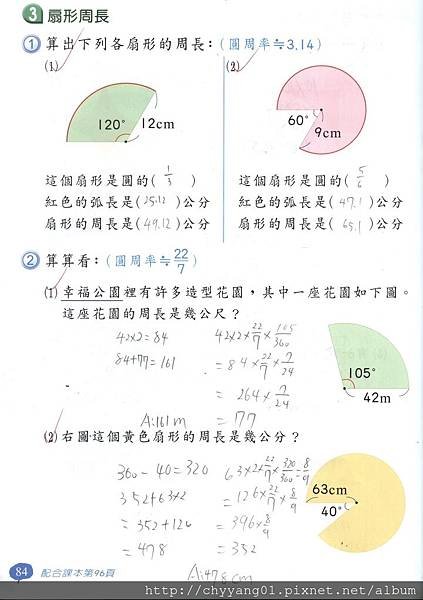 3 扇形周長
1 算出下列各扇形的周長：(圓周率≒3.14)
(1) (2)
120° 12cm
60° 9cm
這個扇形是圓的( 1/3 ) 這個扇形是圓的( 5/6 )
紅色的弧長是(25.12)公分 紅色的弧長是( 47.1 )公分
扇形的周長是(49.12)公分 扇形的周長是( 65.1 )公分
2 算算看：(圓周率≒22/7)
(1) 幸福公園裡有許多造型花園，其中一座花園如下圖。
這座花園的周長是幾公尺？
42×2=84 42×2×22/7×105/360
84+77=161 =84×22/7×7/24
=264×7/24
A:161m =77
105°
42m
(2) 右圖這個黃色扇形的周長是幾公分？
360-40=320 63×2×22/7×320/360=8/9
352+63×2 =126×22/7×8/9
=352+126 =396×8/9
=478 =352
63cm
40°
A:478cm
84 配合課本第96頁
http://chyyang01.pixnet.net/album